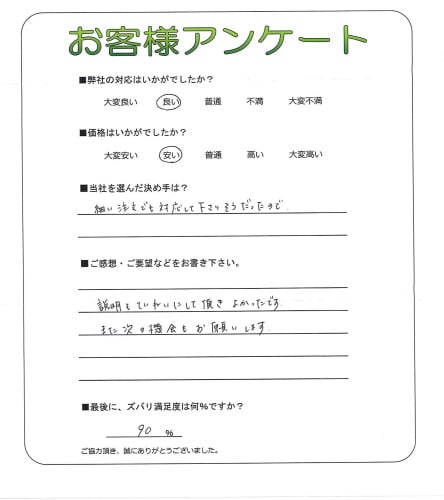 お客様アンケート
■弊社の対応はいかがでしたか?
大変良い 良い 普通 不満 大変不満
■価格はいかがでしたか?
大変安い 安い 普通 高い 大変高い
■当社を選んだ決め手は?
細い注文でも対応して下さりそうだったので。
■ご感想・ご要望などをお書き下さい。
説明もていねいにして頂きよかったです。
また次の機会もお願いします。
■最後に、ズバリ満足度は何%ですか?
90 %
ご協力頂き、誠にありがとうございました。